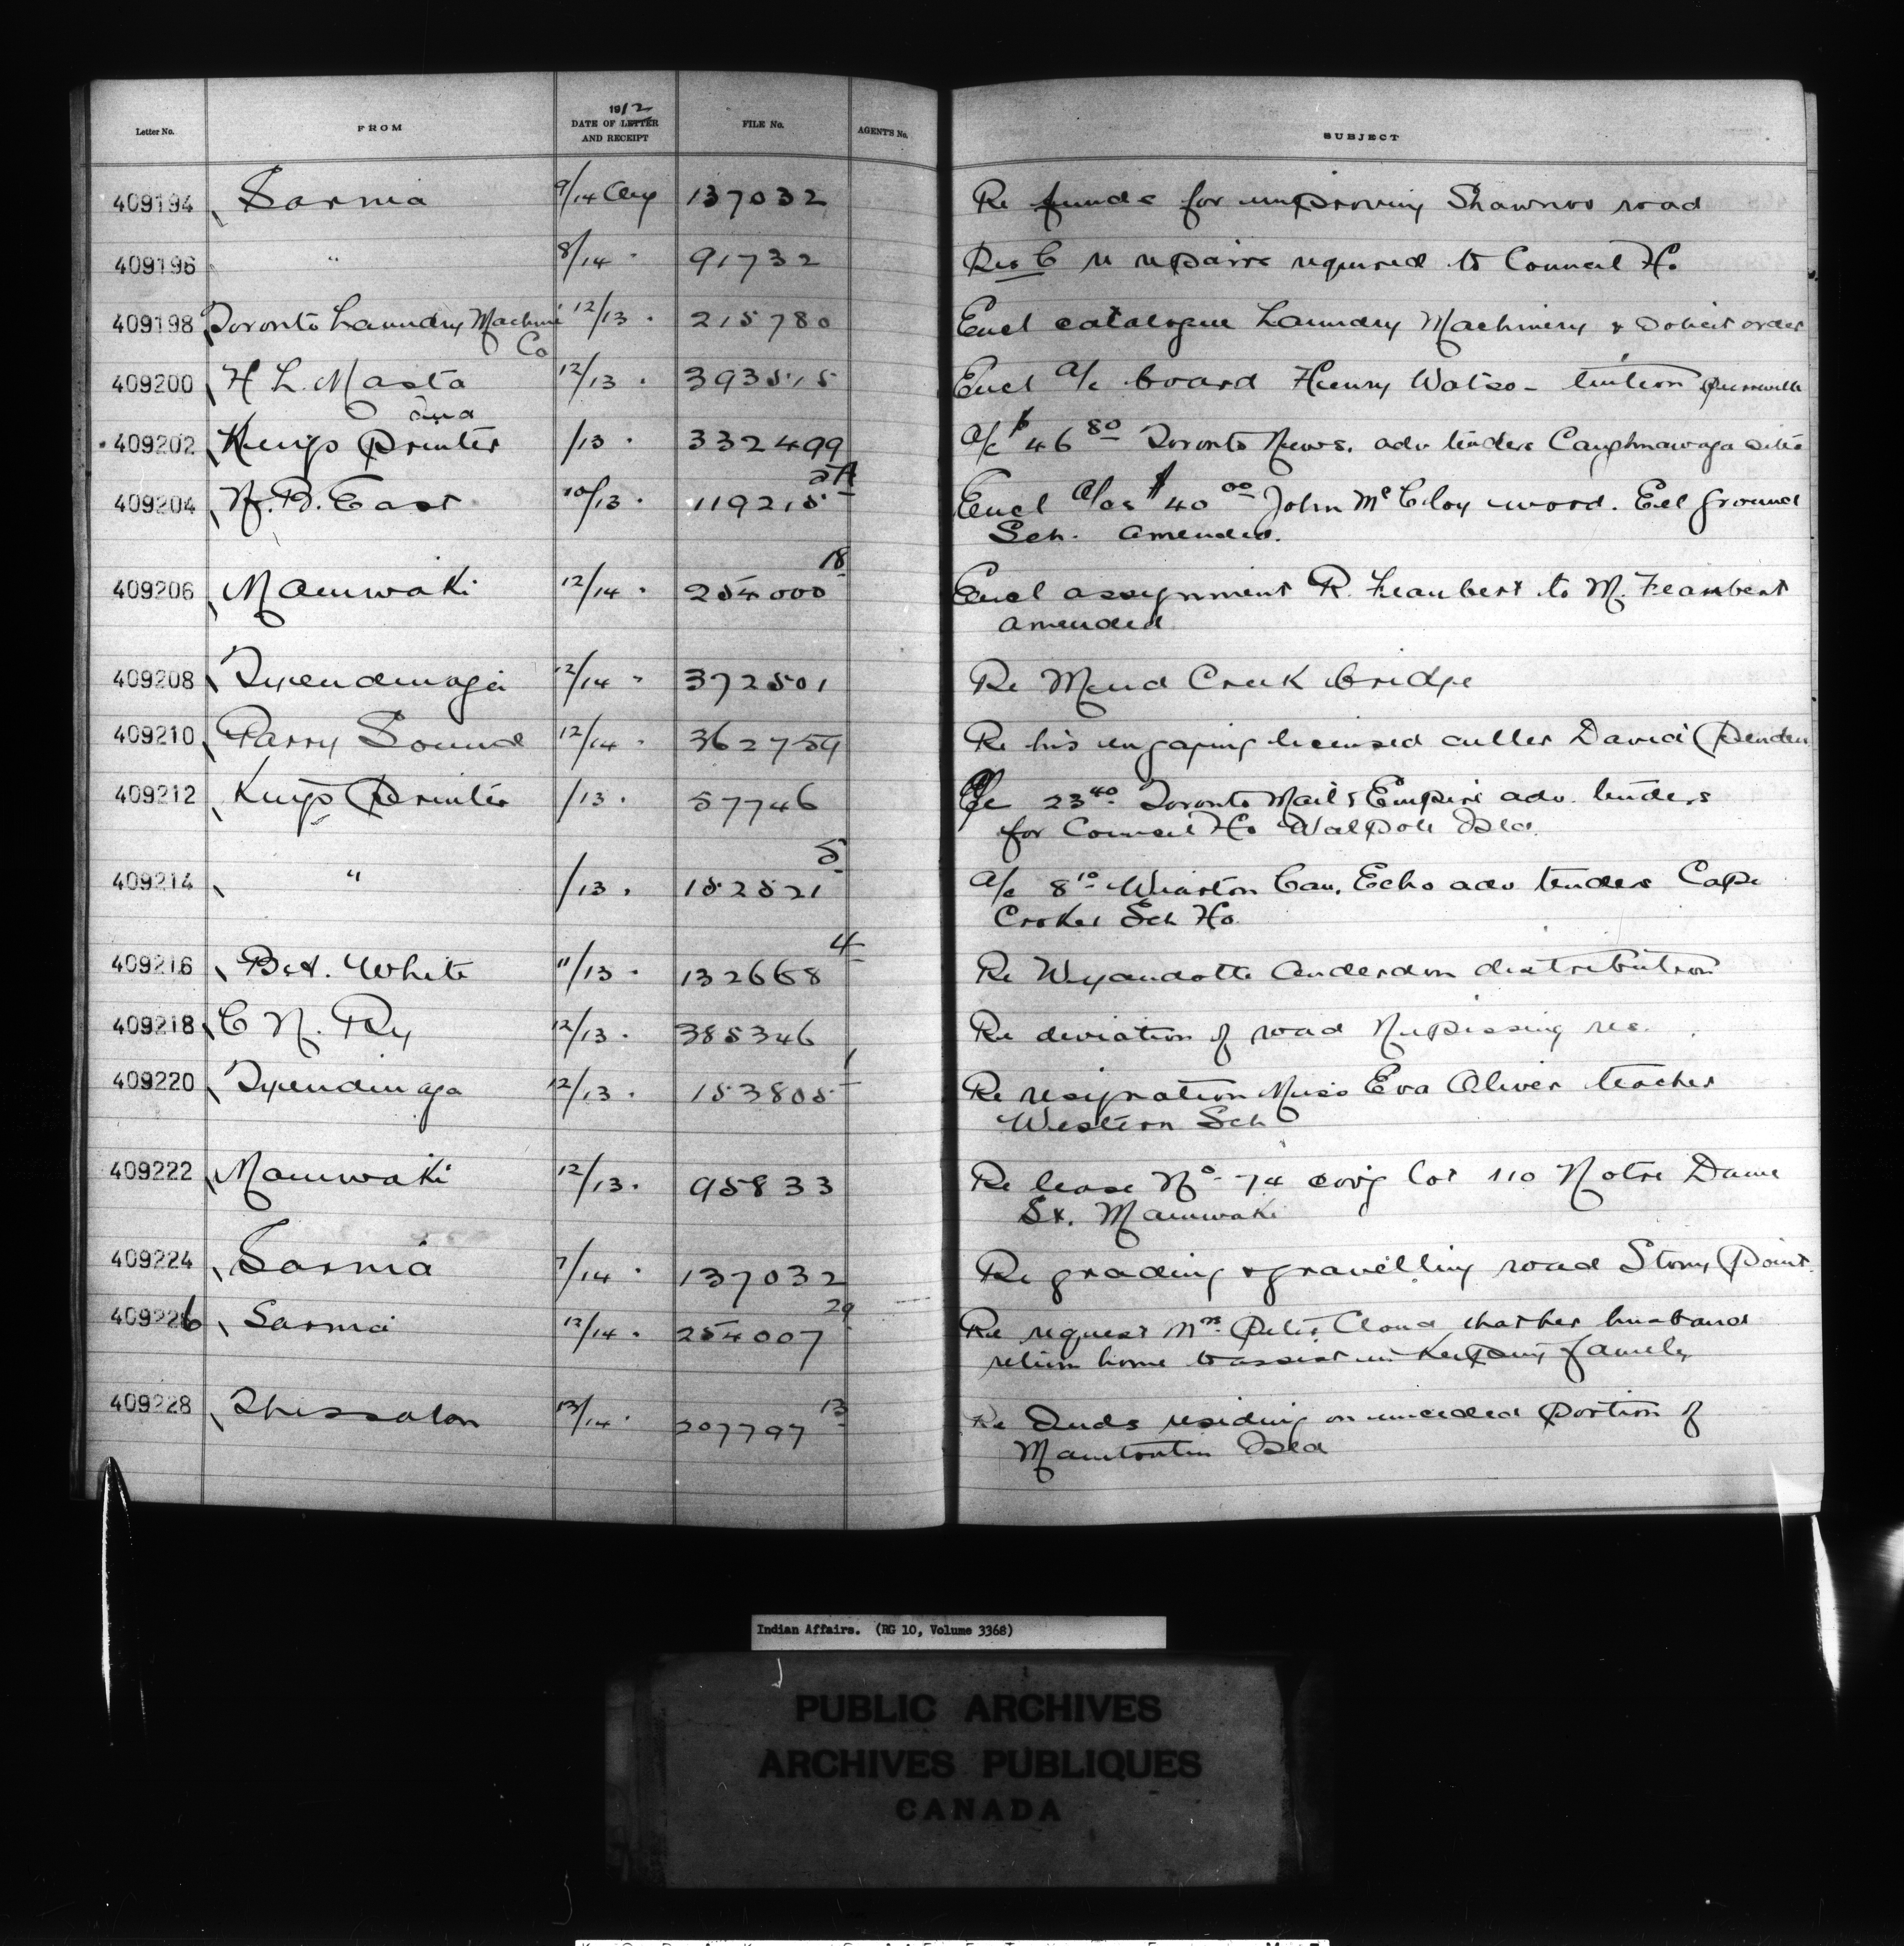 Letter No. FROM 1912 DATE OF LETTER AND RECEIPT FILE No. AGENT'S No. SUBJECT
409194 Sarnia 9/14 Aug 137032 Re funds for improving Shawnoo road
409196 " 8/14 " 91732 Res C re repairs required to Council Ho
409198 Toronto Laundry Machine Co 12/13 " 215780 Encl catalogue Laundry Machinery & solicit order
409200 H L. Masta 12/13 " 393515 Encl a/c board Henry Watso- tuition
409202 Kings Printer /13 " 332499 a/c $46 80 Toronto News. adv tenders Caughnawaga
409204 N. B. East 10/13 " 119215 2A Encl a/cs $40 00 John McCloy wood. Eel ground
Sch. amended.
409206 Maniwaki 12/14 " 254000 18 Encl assignment R. to M.
amended
409208 Tyendinaga 12/14 " 372501 Re Mud Creek bridge
409210 Parry Sound 12/14 " 362759 Re his engaging licensed culler David
409212 Kings Printer /13 " 57746 a/c 23 40 Toronto Mail & Empire adv. tenders
for Council Ho Walpole Isld.
409214 " /13 " 152521 5 a/c 8 10 Wiarton Can. Echo adv tenders Cape
Croker Sch Ho
409216 White 11/13 " 132668 4 Re Wyandotte Anderdon distribution
409218 C N. Ry 12/13 " 385346 Re deviation of road Nipissing res.
409220 Tyendinaga 12/13 " 153805 1 Re resignation Miss Eva Oliver teacher
Western Sch
409222 Maniwaki 12/13 " 95833 Re lease No 74 cov'g lot 110 Notre Dame
St. Maniwaki
409224 Sarnia 7/14 " 137032 Re grading & gravelling road Stony Point.
409226 Sarnia 12/14 " 254007 29 Re request Mrs Peter Cloud that her husband
return home to assist in keeping family
409228 Thessalon 13/14 " 207797 13 Re Inds residing on unceded portion of
Manitoulin Isld
Indian Affairs. (RG 10, Volume 3368)
PUBLIC ARCHIVES
ARCHIVES PUBLIQUES
CANADA